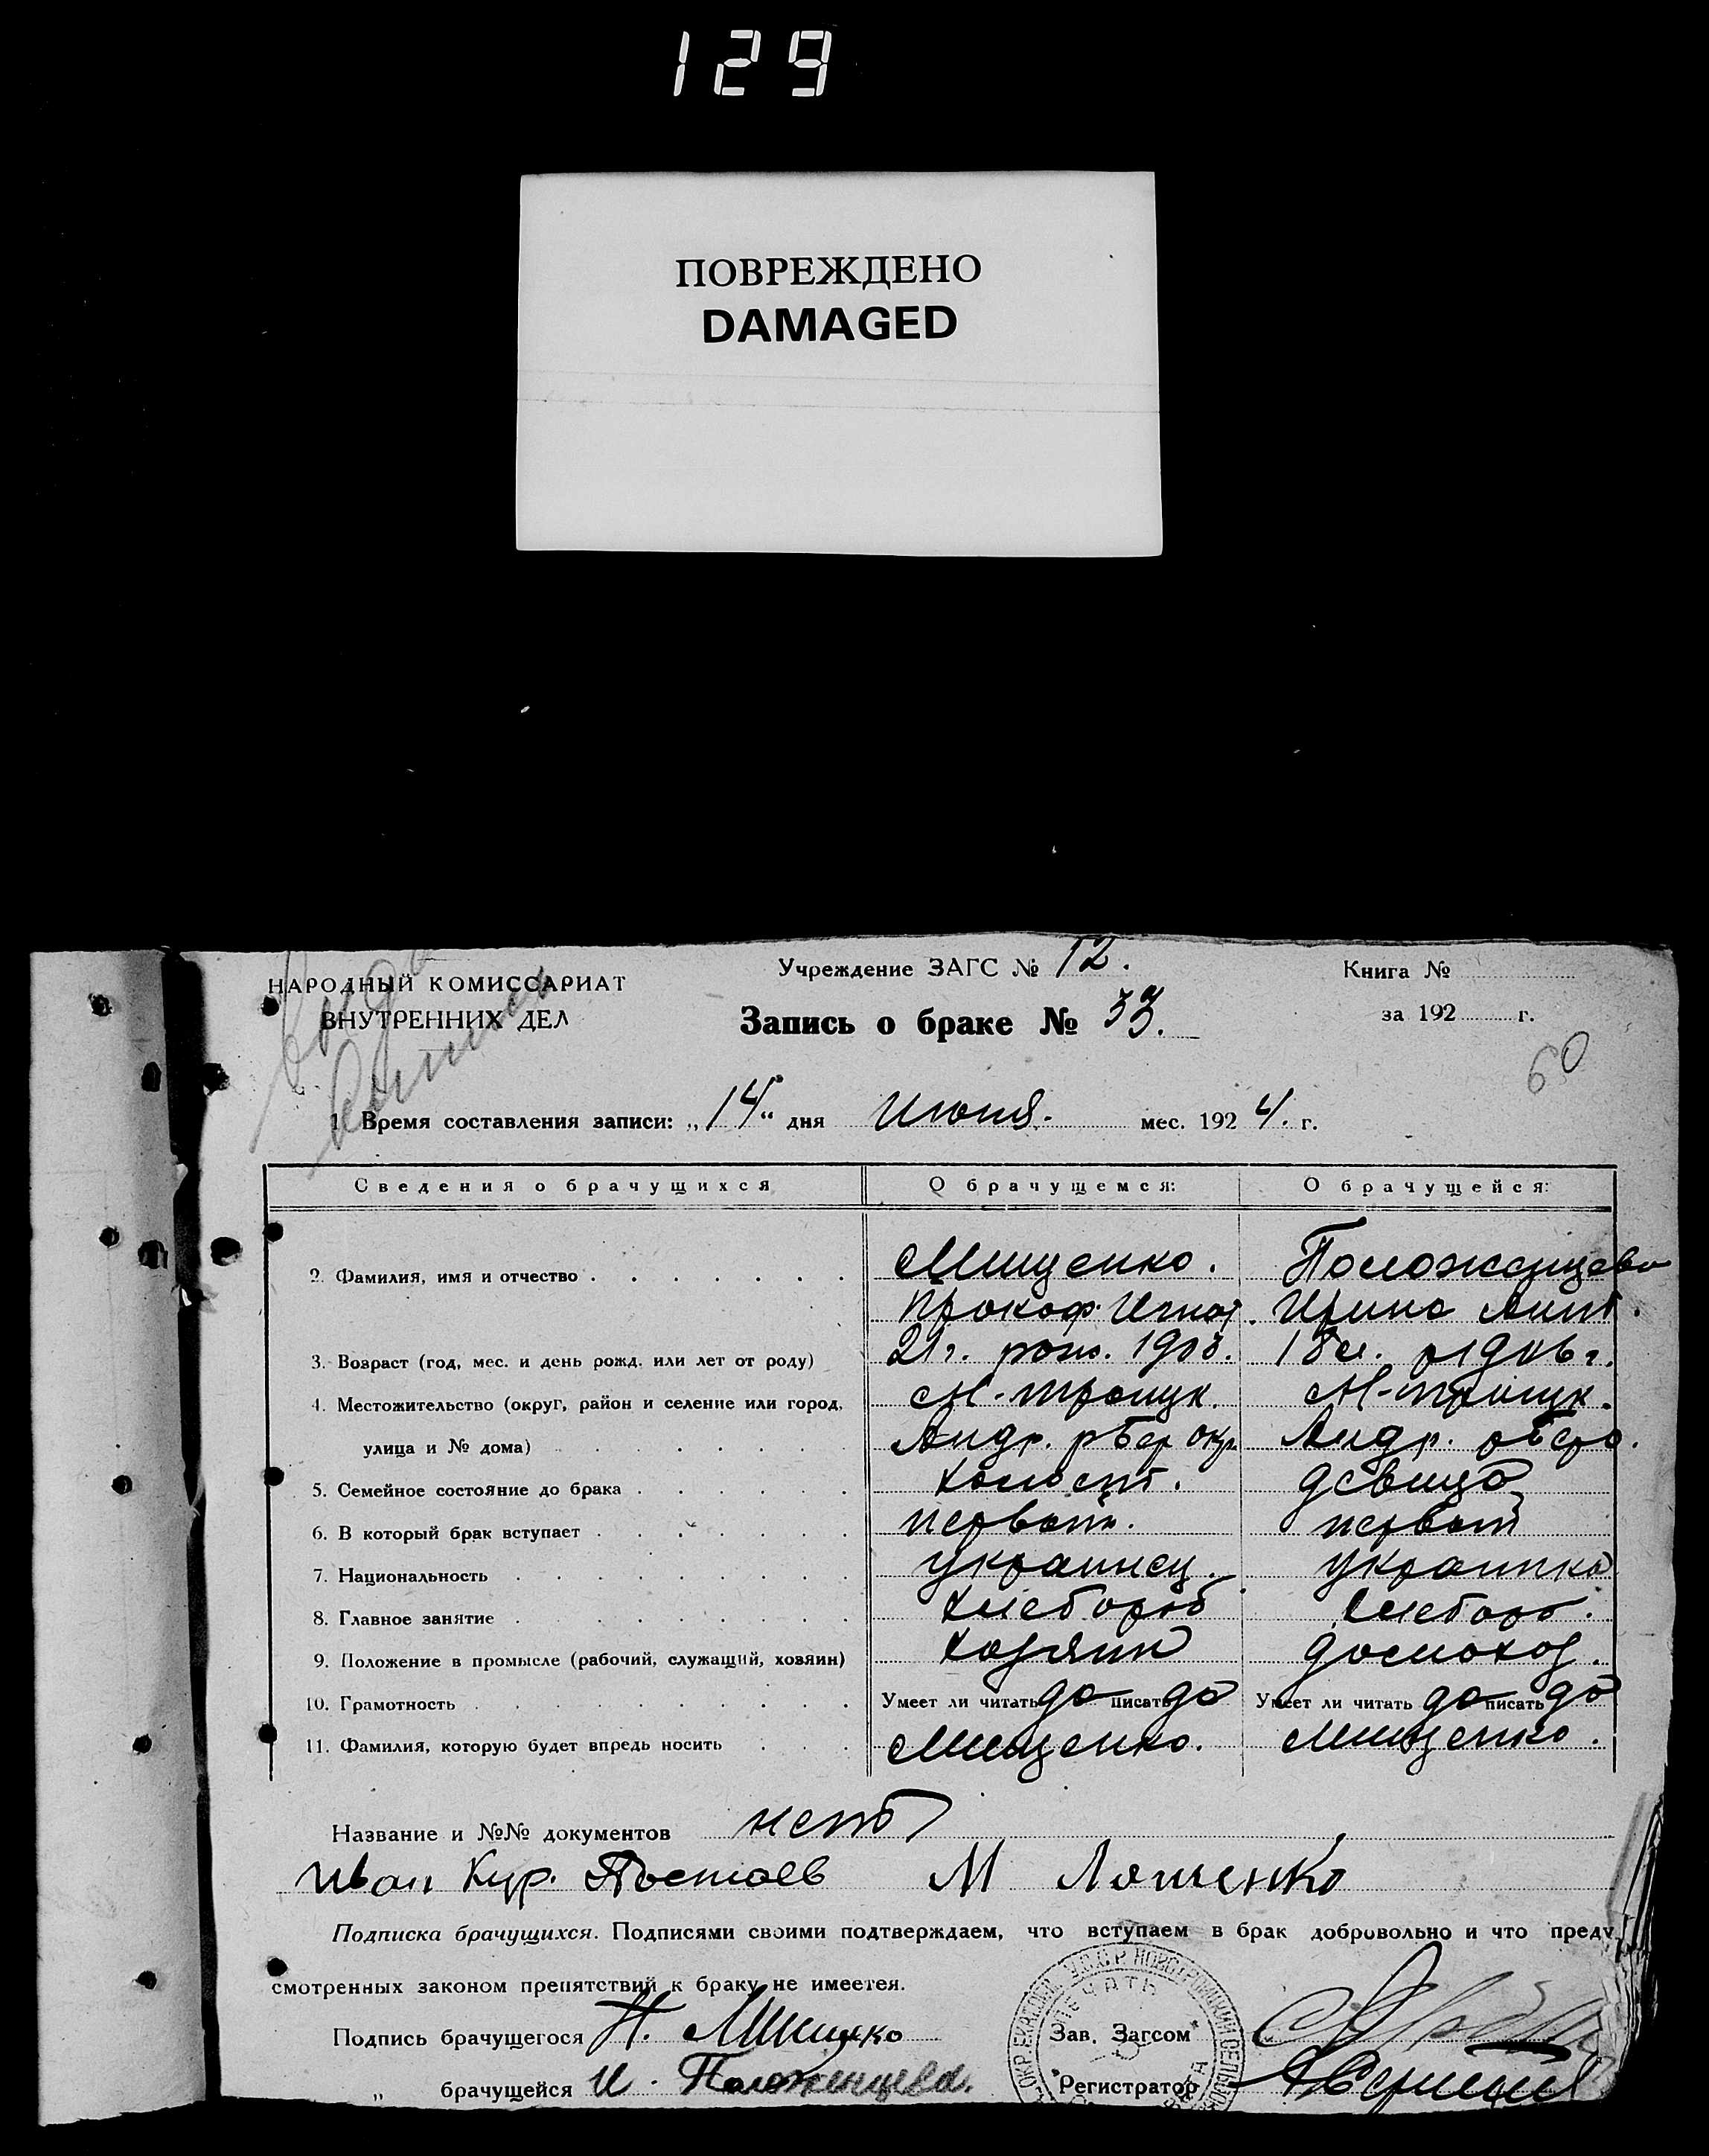 129
ПОВРЕЖДЕНО
DAMAGED
НАРОДНЫЙ КОМИССАРИАТ
ВНУТРЕННИХ ДЕЛ
Учреждение ЗАГС № 12.
Запись о браке № 33.
Книга №
за 192 г.
60
1. Время составления записи: „14“ дня Июня. мес. 1924. г.
Сведения о брачущихся О брачущемся: О брачущейся:
2. Фамилия, имя и отчество Мищенко. Положенцева
Прокоф. Игнат. Ирина Ант.
3. Возраст (год, мес. и день рожд. или лет от роду) 21 г. рож. 1903. 18 л. р 1906 г.
4. Местожительство (округ, район и селение или город, Н-троицк. Н-троицк.
улица и № дома) Андр. р Бер окр Андр. р Бер о.
5. Семейное состояние до брака холост. девица
6. В который брак вступает первый. первый
7. Национальность украинец. украинка
8. Главное занятие хлебороб хлебороб.
9. Положение в промысле (рабочий, служащий, хозяин) хозяин домохоз.
10. Грамотность Умеет ли читать да писать да Умеет ли читать да писать да
11. Фамилия, которую будет впредь носить Мищенко. Мищенко.
Название и №№ документов нет
Иван Кур. М Ляшенко
Подписка брачущихся. Подписями своими подтверждаем, что вступаем в брак добровольно и что преду
смотренных законом препятствий к браку не имеется.
Подпись брачущегося П. Мищенко Зав. Загсом
„ брачущейся И. Положенцева. Регистратор
ПЕЧАТЬ